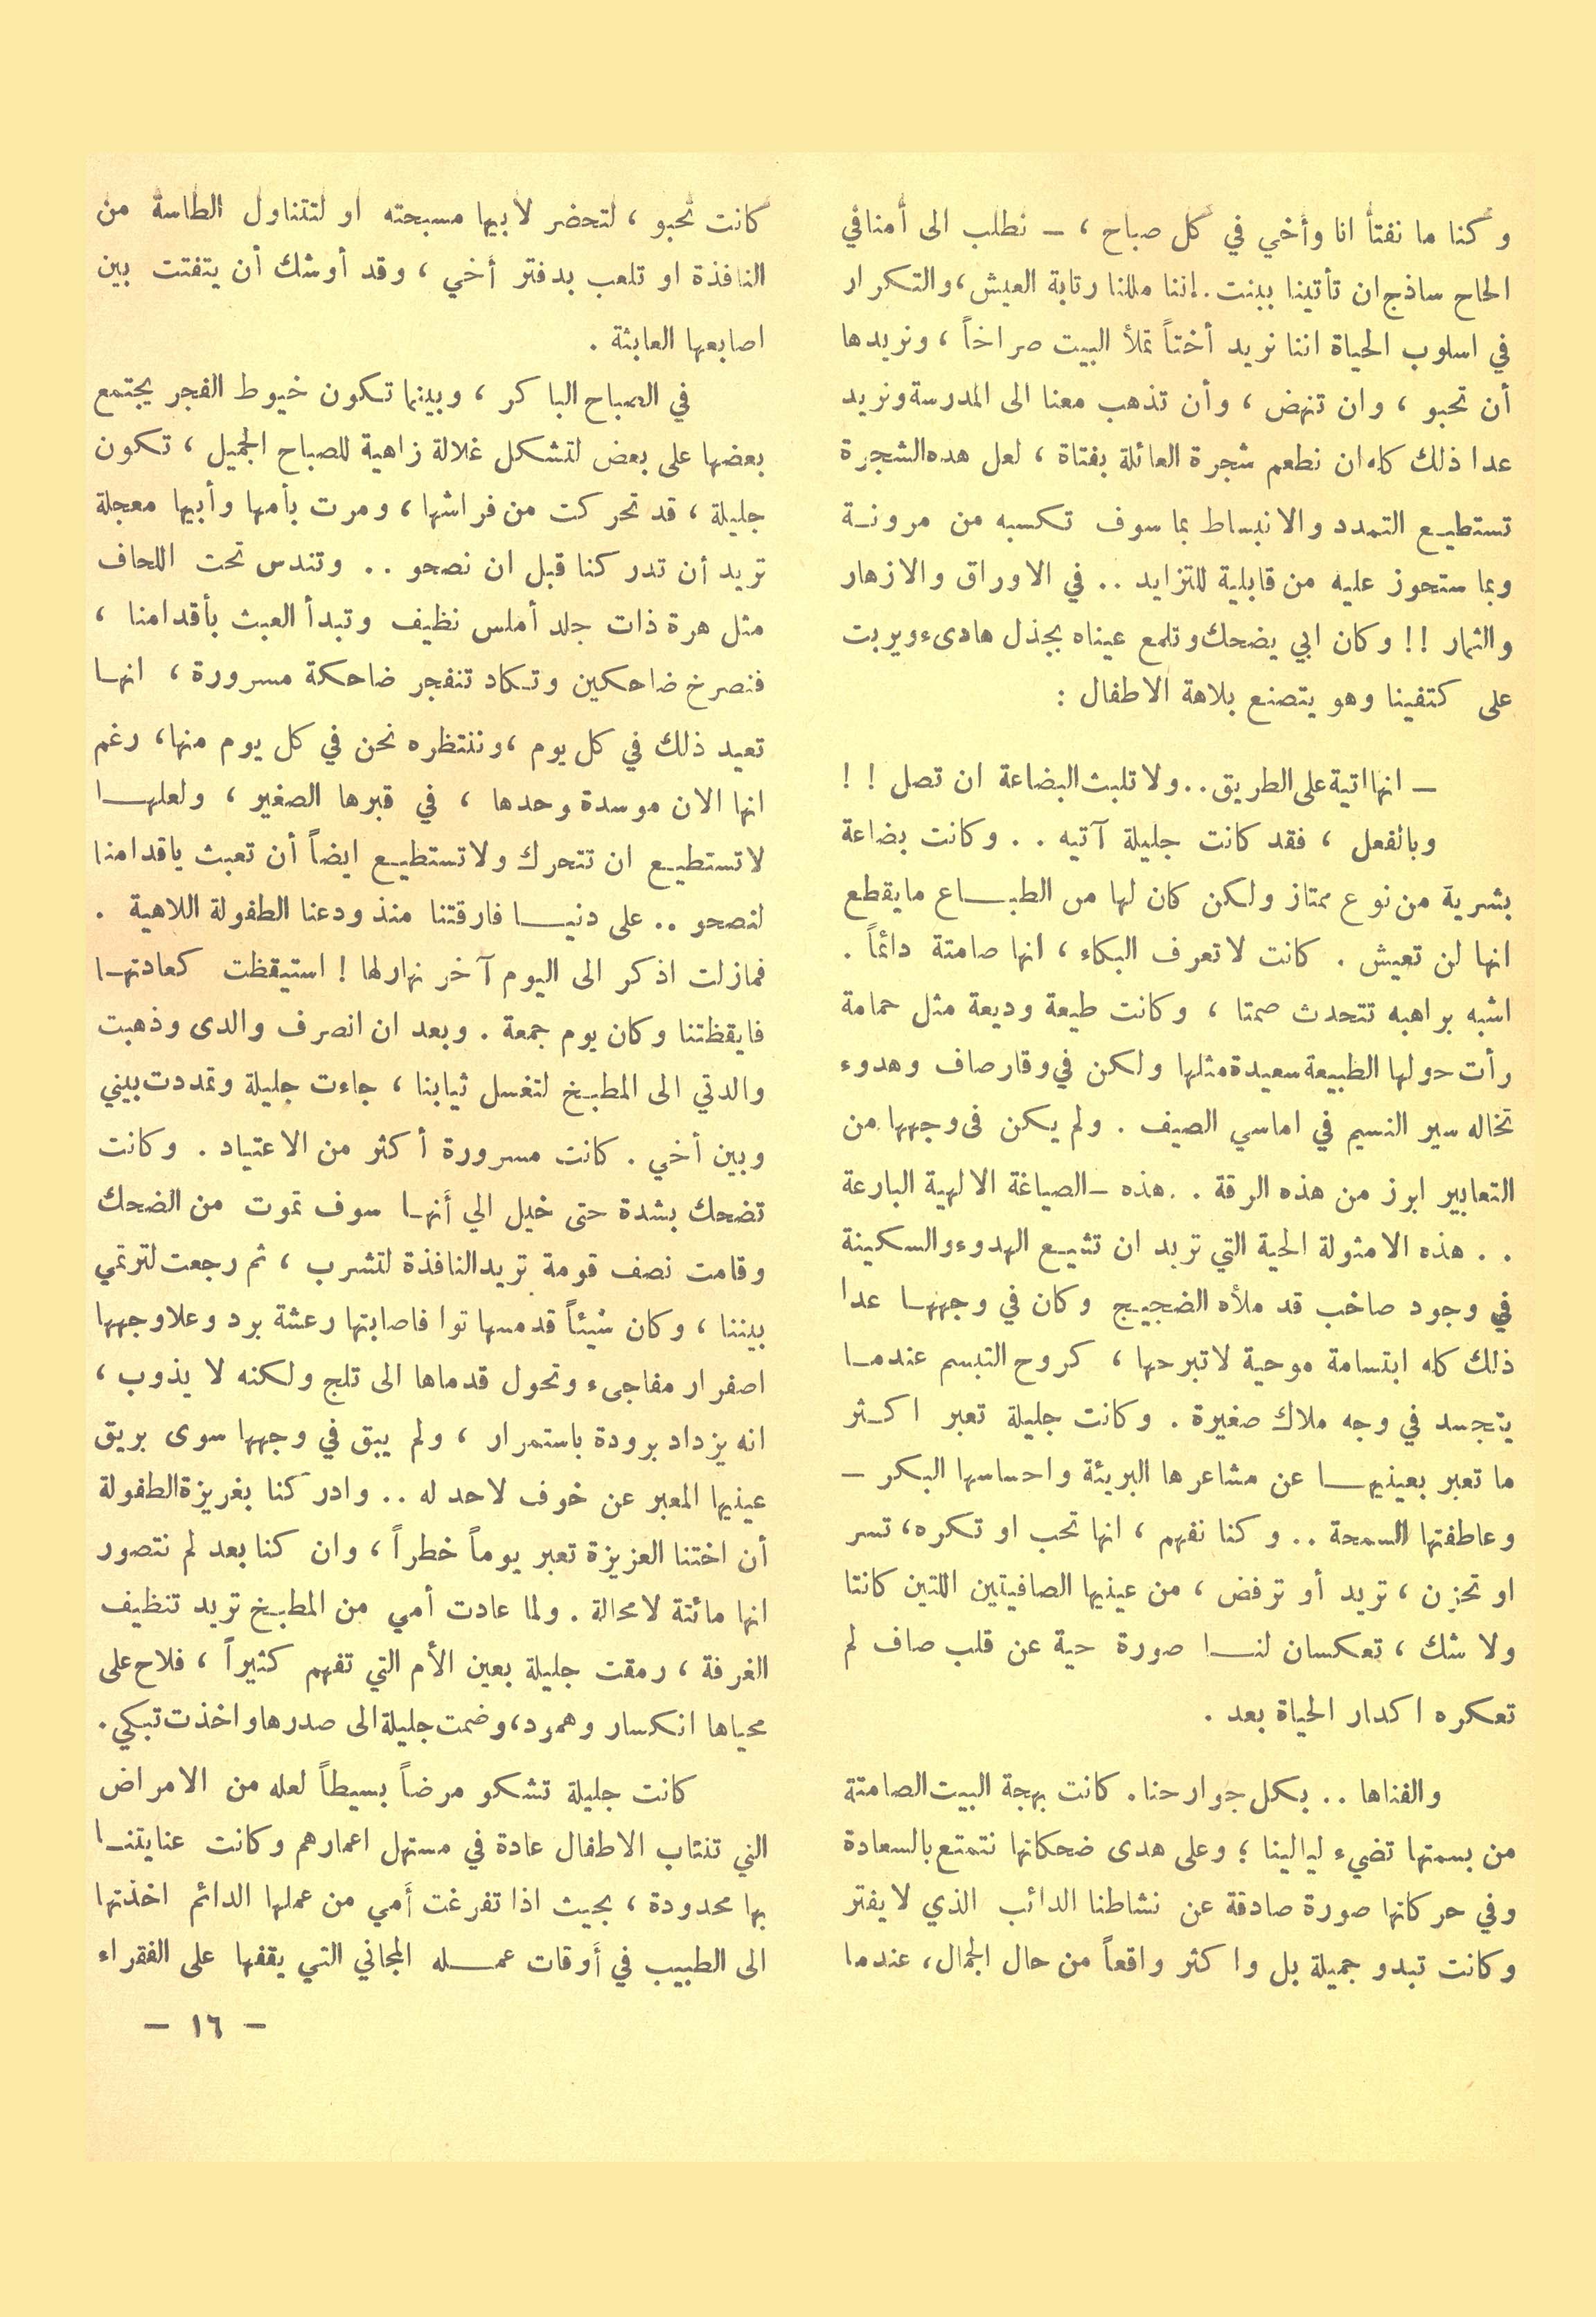 وكنا ما نفتأ انا وأخي في كل صباح ، — نطلب الى أمنا في
الحاح ساذج ان تأتينا ببنت . إننا مللنا رتابة العيش ، والتكرار
في اسلوب الحياة اننا نريد أختاً تملأ البيت صراخاً ، ونريدها
أن تحبو ، وان تنهض ، وأن تذهب معنا الى المدرسة ونريد
عدا ذلك كله ان نطعم شجرة العائلة بفتاة ، لعل هده الشجرة
تستطيع التمدد والانبساط بما سوف تكسبه من مرونة
وبما ستحوز عليه من قابلية للتزايد .. في الاوراق والازهار
والثمار !! وكان ابي يضحك وتلمع عيناه بجذل هادىء ويربت
على كتفينا وهو يتصنع بلاهة الاطفال :
— انها اتية على الطريق .. ولا تلبث البضاعة ان تصل ! !
وبالفعل ، فقد كانت جليلة آتيه . . وكانت بضاعة
بشرية من نوع ممتاز ولكن كان لها من الطباع مايقطع
انها لن تعيش . كانت لا تعرف البكاء ، انها صامتة دائماً .
اشبه براهبه تتحدث صمتا ، وكانت طيعة وديعة مثل حمامة
رأت حولها الطبيعة سعيدة مثلها ولكن في وقار صاف وهدوء
تخاله سير النسيم في اماسي الصيف . ولم يكن فى وجهها من
التعابير ابرز من هذه الرقة . . هذه – الصياغة الالهية البارعة
. . هذه الامثولة الحية التي تريد ان تشيع الهدوء والسكينة
في وجود صاخب قد ملأه الضجيج وكان في وجهها عدا
ذلك كله ابتسامة موحية لا تبرحها ، كروح التبسم عندما
يتجسد في وجه ملاك صغيرة . وكانت جليلة تعبر اكثر
ما تعبر بعينيها عن مشاعرها البريئة واحساسها البكر –
وعاطفتها السمحة .. وكنا نفهم ، انها تحب او تكره ، تسر
او تحزن ، تريد أو ترفض ، من عينيها الصافيتين اللتين كانتا
ولا شك ، تعكسان لنا صورة حية عن قلب صاف لم
تعكره اكدار الحياة بعد .
والفناها .. بكل جوارحنا . كانت بهجة البيت الصامتة
من بسمتها تضيء ليالينا ؛ وعلى هدى ضحكاتها نتمتع بالسعادة
وفي حركاتها صورة صادقة عن نشاطنا الدائب الذي لا يفتر
وكانت تبدو جميلة بل واكثر واقعاً من حال الجمال ، عندما
كانت تحبو ، لتحضر لأبيها مسبحته او لتتناول الطاسة من
النافذة او تلعب بدفتر أخي ، وقد أوشك أن يتفتت بين
اصابعها العابثة .
في الصباح الباكر ، وبينما تكون خيوط الفجر يجتمع
بعضها على بعض لتشكل غلالة زاهية للصباح الجميل ، تكون
جليلة ، قد تحركت من فراشها ، ومرت بأمها وأبيها معجلة
تريد أن تدركنا قبل ان نصحو .. وتندس تحت اللحاف
مثل هرة ذات جلد أملس نظيف وتبدأ العبث بأقدامنا ،
فنصرخ ضاحكين وتكاد تنفجر ضاحكة مسرورة ، انها
تعيد ذلك في كل يوم ، وننتظره نحن في كل يوم منها ، رغم
انها الان موسدة وحدها ، في قبرها الصغير ، ولعلها
لا تستطيع ان تتحرك ولا تستطيع ايضاً أن تعبث ياقدامنا
لنصحو .. على دنيا فارقتنا منذ ودعنا الطفولة اللاهية .
فمازلت اذكر الى اليوم آخر نهار لها ! استيقظت كعادتها
فايقظتنا وكان يوم جمعة . وبعد ان انصرف والدى وذهبت
والدتي الى المطبخ لتغسل ثيابنا ، جاءت جليلة وتمددت بيني
وبين أخي . كانت مسرورة أكثر من الاعتياد . وكانت
تضحك بشدة حتى خيل الي أنها سوف تموت من الضحك
وقامت نصف قومة تريد النافذة لتشرب ، ثم رجعت لترتمي
بيننا ، وكان شيئاً قد مسها توا فاصابتها رعشة برد وعلا وجهها
اصفرار مفاجىء وتحول قدماها الى ثلج ولكنه لا يذوب ،
انه يزداد برودة باستمرار ، ولم يبق في وجهها سوى بريق
عينيها المعبر عن خوف لاحد له .. وادركنا بغريزة الطفولة
أن اختنا العزيزة تعبر يوماً خطراً ، وان كنا بعد لم نتصور
انها مائتة لا محالة . ولما عادت أمي من المطبخ تريد تنظيف
الغرفة ، رمقت جليلة بعين الأم التي تفهم كثيراً ، فلاح على
محياها انكسار وهمود ، وضمت جليلة الى صدرها واخذت تبكي .
كانت جليلة تشكو مرضاً بسيطاً لعله من الامراض
التي تنتاب الاطفال عادة في مستهل اعمارهم وكانت عنايتنا
بها محدودة ، بحيث اذا تفرغت أمي من عملها الدائم اخذتها
الى الطبيب في أوقات عمله المجاني التي يقفها على الفقراء
— ١٦ —